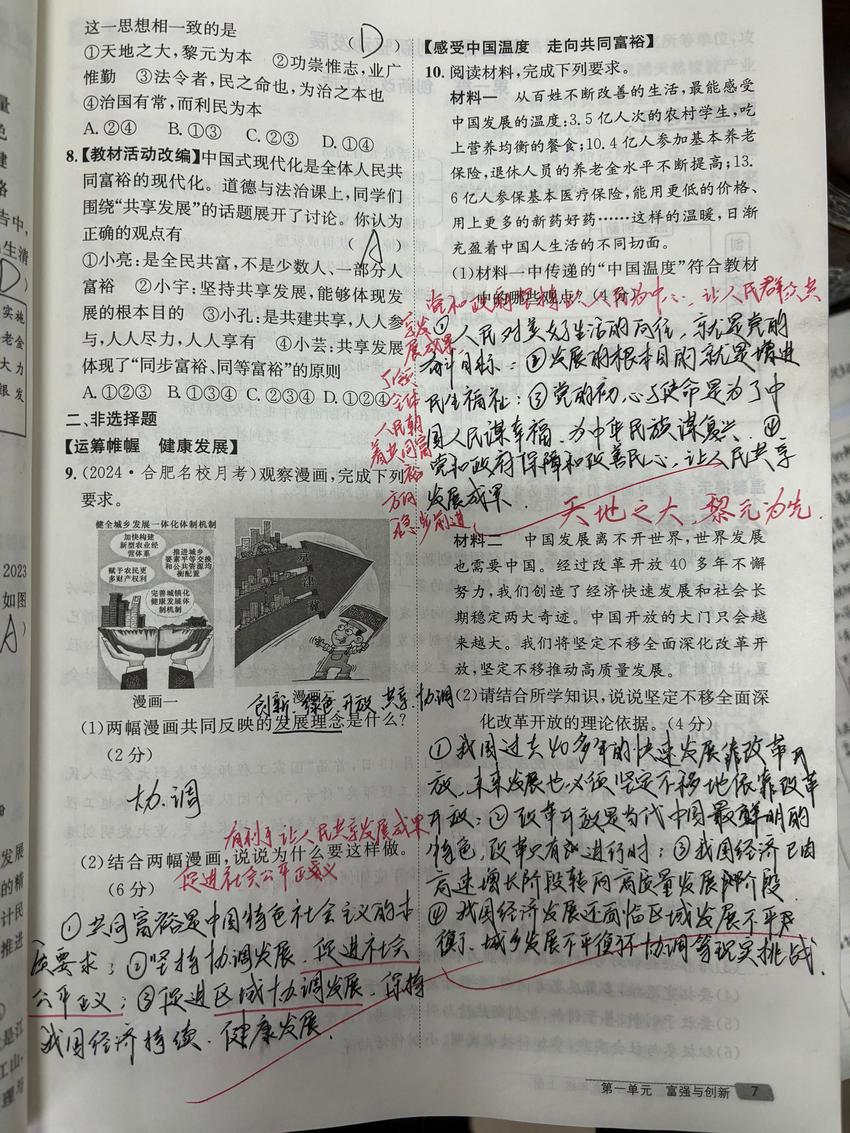 这一思想相一致的是 ( D )
①天地之大,黎元为本 ②功崇惟志,业广
惟勤 ③法令者,民之命也,为治之本也
④治国有常,而利民为本
A. ②④ B. ①③ C. ②③ D. ①④
8.【教材活动改编】中国式现代化是全体人民共
同富裕的现代化。道德与法治课上,同学们
围绕“共享发展”的话题展开了讨论。你认为
正确的观点有 ( A )
①小亮:是全民共富,不是少数人、一部分人
富裕 ②小宇:坚持共享发展,能够体现发
展的根本目的 ③小孔:是共建共享,人人参
与,人人尽力,人人享有 ④小芸:共享发展
体现了“同步富裕、同等富裕”的原则
A. ①②③ B. ①③④ C. ②③④ D. ①②④
二、非选择题
【运筹帷幄 健康发展】
9. (2024·合肥名校月考)观察漫画,完成下列
要求。
健全城乡发展一体化体制机制
加快构建
新型农业经
营体系
推进城乡
要素平等交换
和公共资源均
衡配置
赋予农民更
多财产权利
完善城镇化
健康发展体
制机制
京
津
冀
漫画一
创新 绿色 开放 共享 协调
(1)两幅漫画共同反映的发展理念是什么?
(2分)
协调
有利于让人民共享发展成果
(2)结合两幅漫画,说说为什么要这样做。
(6分)
促进社会公平正义
①共同富裕是中国特色社会主义的本
质要求;②坚持协调发展、促进社会
公平正义;③促进区域协调发展、保持
我国经济持续、健康发展.
【感受中国温度 走向共同富裕】
10. 阅读材料,完成下列要求。
材料一 从百姓不断改善的生活,最能感受
中国发展的温度:3.5亿人次的农村学生,吃
上营养均衡的餐食;10.4亿人参加基本养老
保险,退休人员的养老金水平不断提高;13.
6亿人参保基本医疗保险,能用更低的价格、
用上更多的新药好药……这样的温暖,日渐
充盈着中国人生活的不同切面。
(1)材料一中传递的“中国温度”符合教材
中的哪些观点?(4分)
党和政府坚持以人民为中心,让人民群众共
享发
展成果
了全体
人民朝
着共同富
裕
方向
稳步前进
①人民对美好生活的向往,就是党的
奋斗目标;②发展的根本目的就是增进
民生福祉;③党的初心与使命是为了中
国人民谋幸福、为中华民族谋复兴.④
党和政府保障和改善民心,让人民共享
发展成果.
天地之大,黎元为先.
材料二 中国发展离不开世界,世界发展
也需要中国。经过改革开放40多年不懈
努力,我们创造了经济快速发展和社会长
期稳定两大奇迹。中国开放的大门只会越
来越大。我们将坚定不移全面深化改革开
放,坚定不移推动高质量发展。
(2)请结合所学知识,说说坚定不移全面深
化改革开放的理论依据。(4分)
①我国过去40多年的快速发展靠改革开
放,未来发展也必须坚定不移地依靠改革
开放;②改革开放是当代中国最鲜明的
特色,改革只有进行时;③我国经济已由
高速增长阶段转向高质量发展阶段.
④我国经济发展还面临区域发展不平
衡、城乡发展不平衡不协调等现实挑战.
第一单元 富强与创新 7